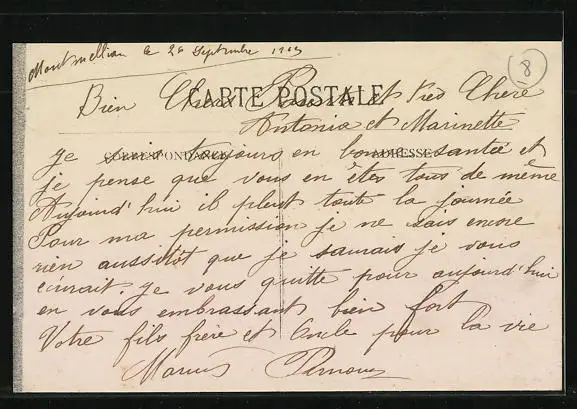 Montmellian le 26 Septembre 1913
8
CARTE POSTALE
Bien Chers Parents et bien Chère
Antonia et Marinette
CORRESPONDANCE ADRESSE
Je suis toujours en bonne santée et
je pense que vous en êtes tous de même
Aujourd'hui il pleut toute la journée
Pour ma permission je ne sais encore
rien aussitôt que je saurais je vous
écrirait. Je vous quitte pour aujourd'hui
en vous embrassant bien fort
Votre fils frère et Oncle pour la vie
Marius